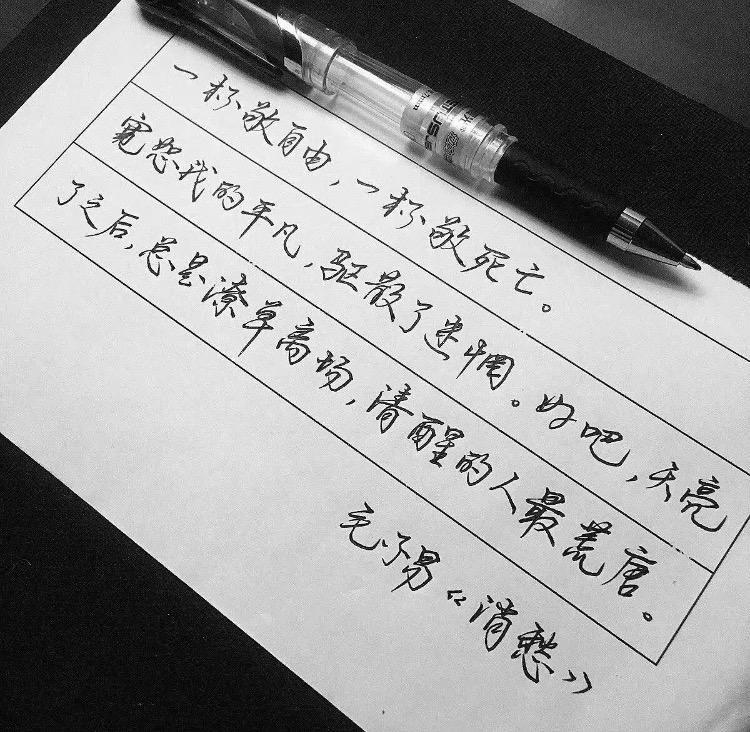 一杯敬自由，一杯敬死亡。
宽恕我的平凡，驱散了迷惘。好吧，天亮
了之后，总是潦草离场，清醒的人最荒唐。
毛不易《消愁》